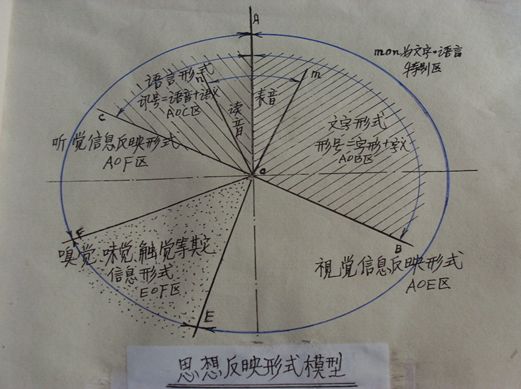 A
mon为文字·语言
特别区
语言形式
讯号=语音+语义
AOC区
n
m
读音
表音
C
文字形式
形号=字形+字义
AOB区
听觉信息反映形式
AOF区
O
F
B
嗅觉、味觉、触觉等其它
信息形式
EOF区
視覚信息反映形式
AOE区
E
思想反映形式模型